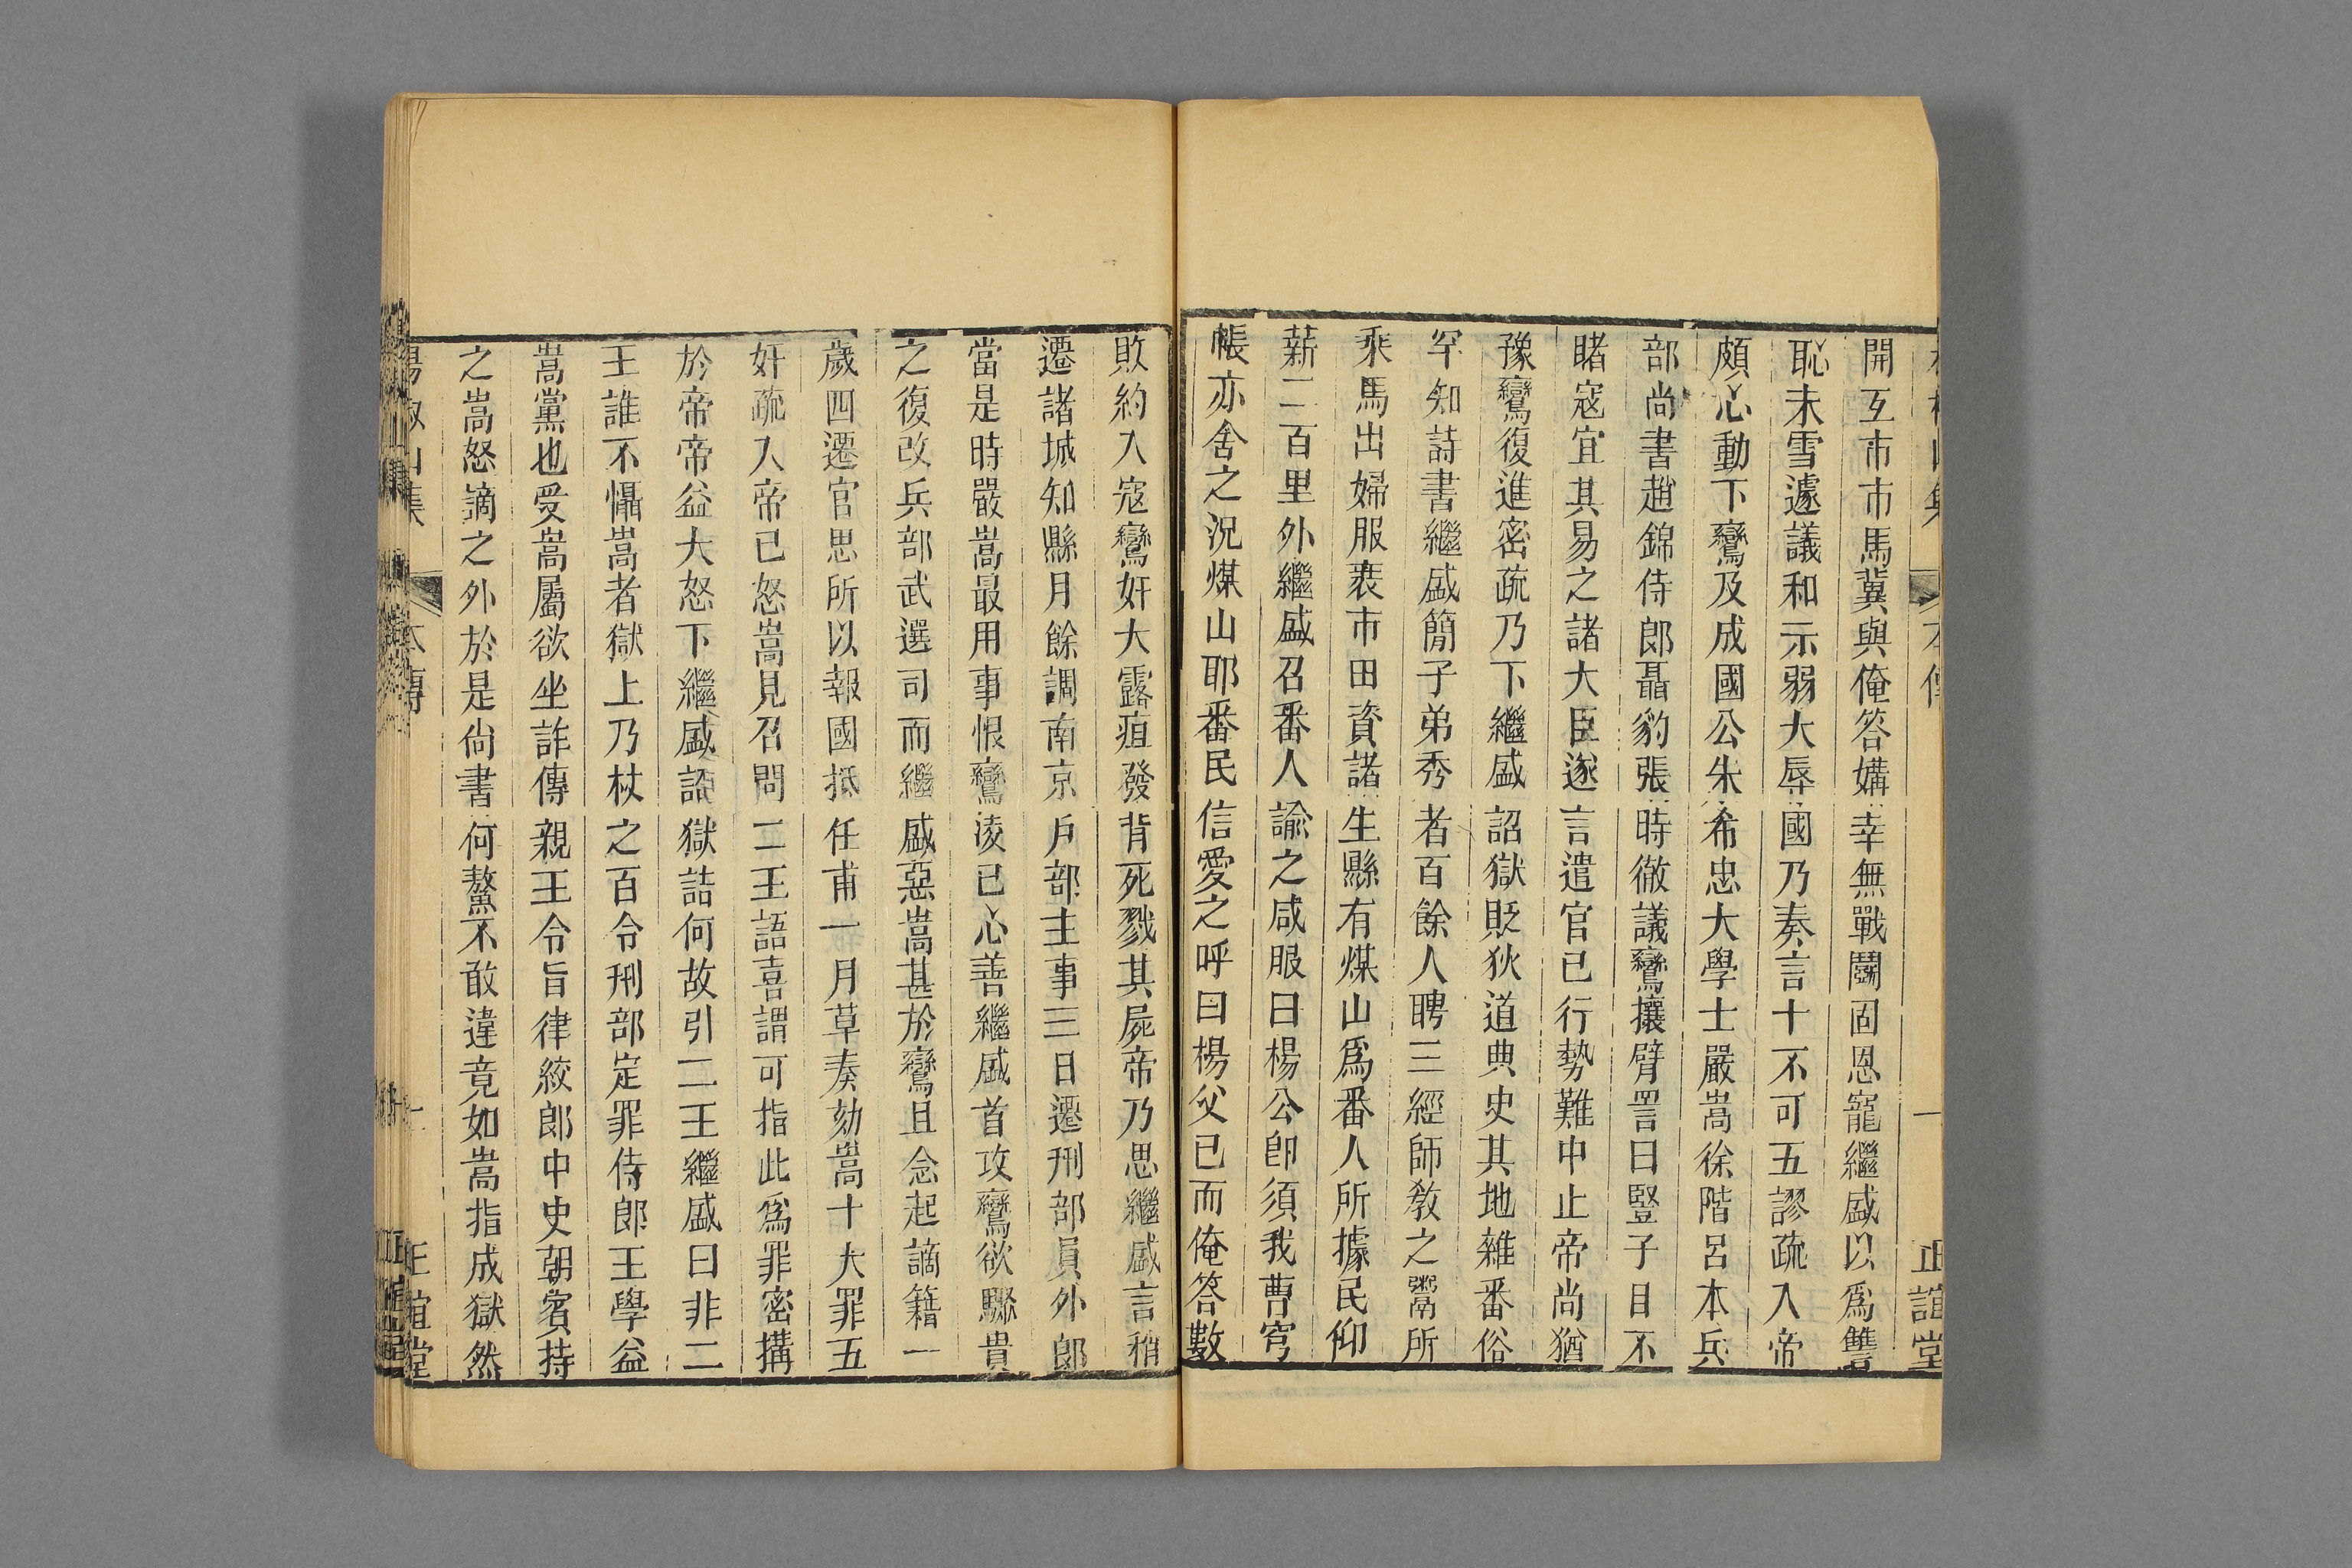 開互市市馬冀與俺答媾幸無戰鬭固恩寵繼盛以爲讐
恥未雪遽議和示弱大辱國乃奏言十不可五謬疏入帝
頗心動下鸞及成國公朱希忠大學士嚴嵩徐階呂本兵
部尚書趙錦侍郎聶豹張時徹議鸞攘臂詈曰豎子目不
睹寇宜其易之諸大臣遂言遣官已行勢難中止帝尚猶
豫鸞復進密疏乃下繼盛詔獄貶狄道典史其地雜番俗
罕知詩書繼盛簡子弟秀者百餘人聘三經師教之鬻所
乘馬出婦服裝市田資諸生縣有煤山爲番人所據民仰
薪二百里外繼盛召番人諭之咸服曰楊公卽須我曹穹
帳亦舍之況煤山耶番民信愛之呼曰楊父已而俺答數
敗約入寇鸞奸大露疽發背死戮其屍帝乃思繼盛言稍
遷諸城知縣月餘調南京戶部主事三日遷刑部員外郎
當是時嚴嵩最用事恨鸞淩已心善繼盛首攻鸞欲驟貴
之復改兵部武選司而繼盛惡嵩甚於鸞且念起謫籍一
歲四遷官思所以報國抵任甫一月草奏劾嵩十大罪五
奸疏入帝已怒嵩見召問二王語喜謂可指此爲罪密搆
於帝帝益大怒下繼盛詔獄詰何故引二王繼盛曰非二
王誰不懾嵩者獄上乃杖之百令刑部定罪侍郎王學益
嵩黨也受嵩屬欲坐詐傳親王令旨律絞郎中史朝賓持
之嵩怒謫之外於是尚書何鰲不敢違竟如嵩指成獄然